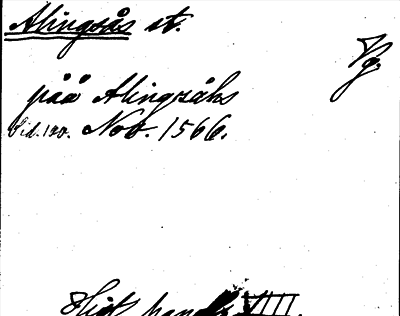 Alingsås st.
Vg.
påå Alingsåhs
Sid. 100. Nov. 1566.
Hist. handl. VIII.